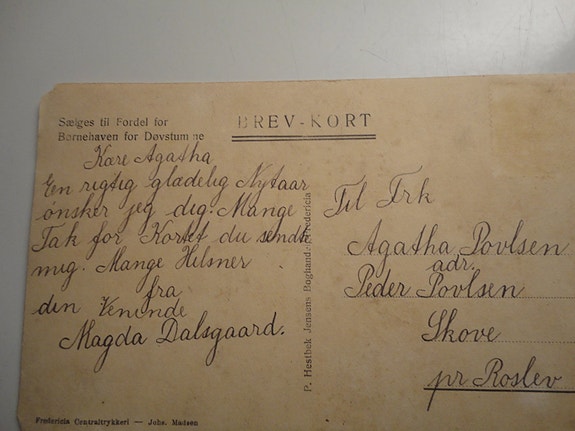 Sælges til Fordel for
Børnehaven for Døvstumme
BREV-KORT
Kære Agatha
En rigtig glædelig Nytaar
ønsker jeg dig. Mange
Tak for Kortet du sendte
mig. Mange Hilsner
fra
din Veninde
Magda Dalsgaard.
P. Hestbek Jensens Boghandel, Fredericia
Til Frk
Agatha Povlsen
adr.
Peder Povlsen
Skove
pr Roslev
Fredericia Centraltrykkeri — Johs. Madsen